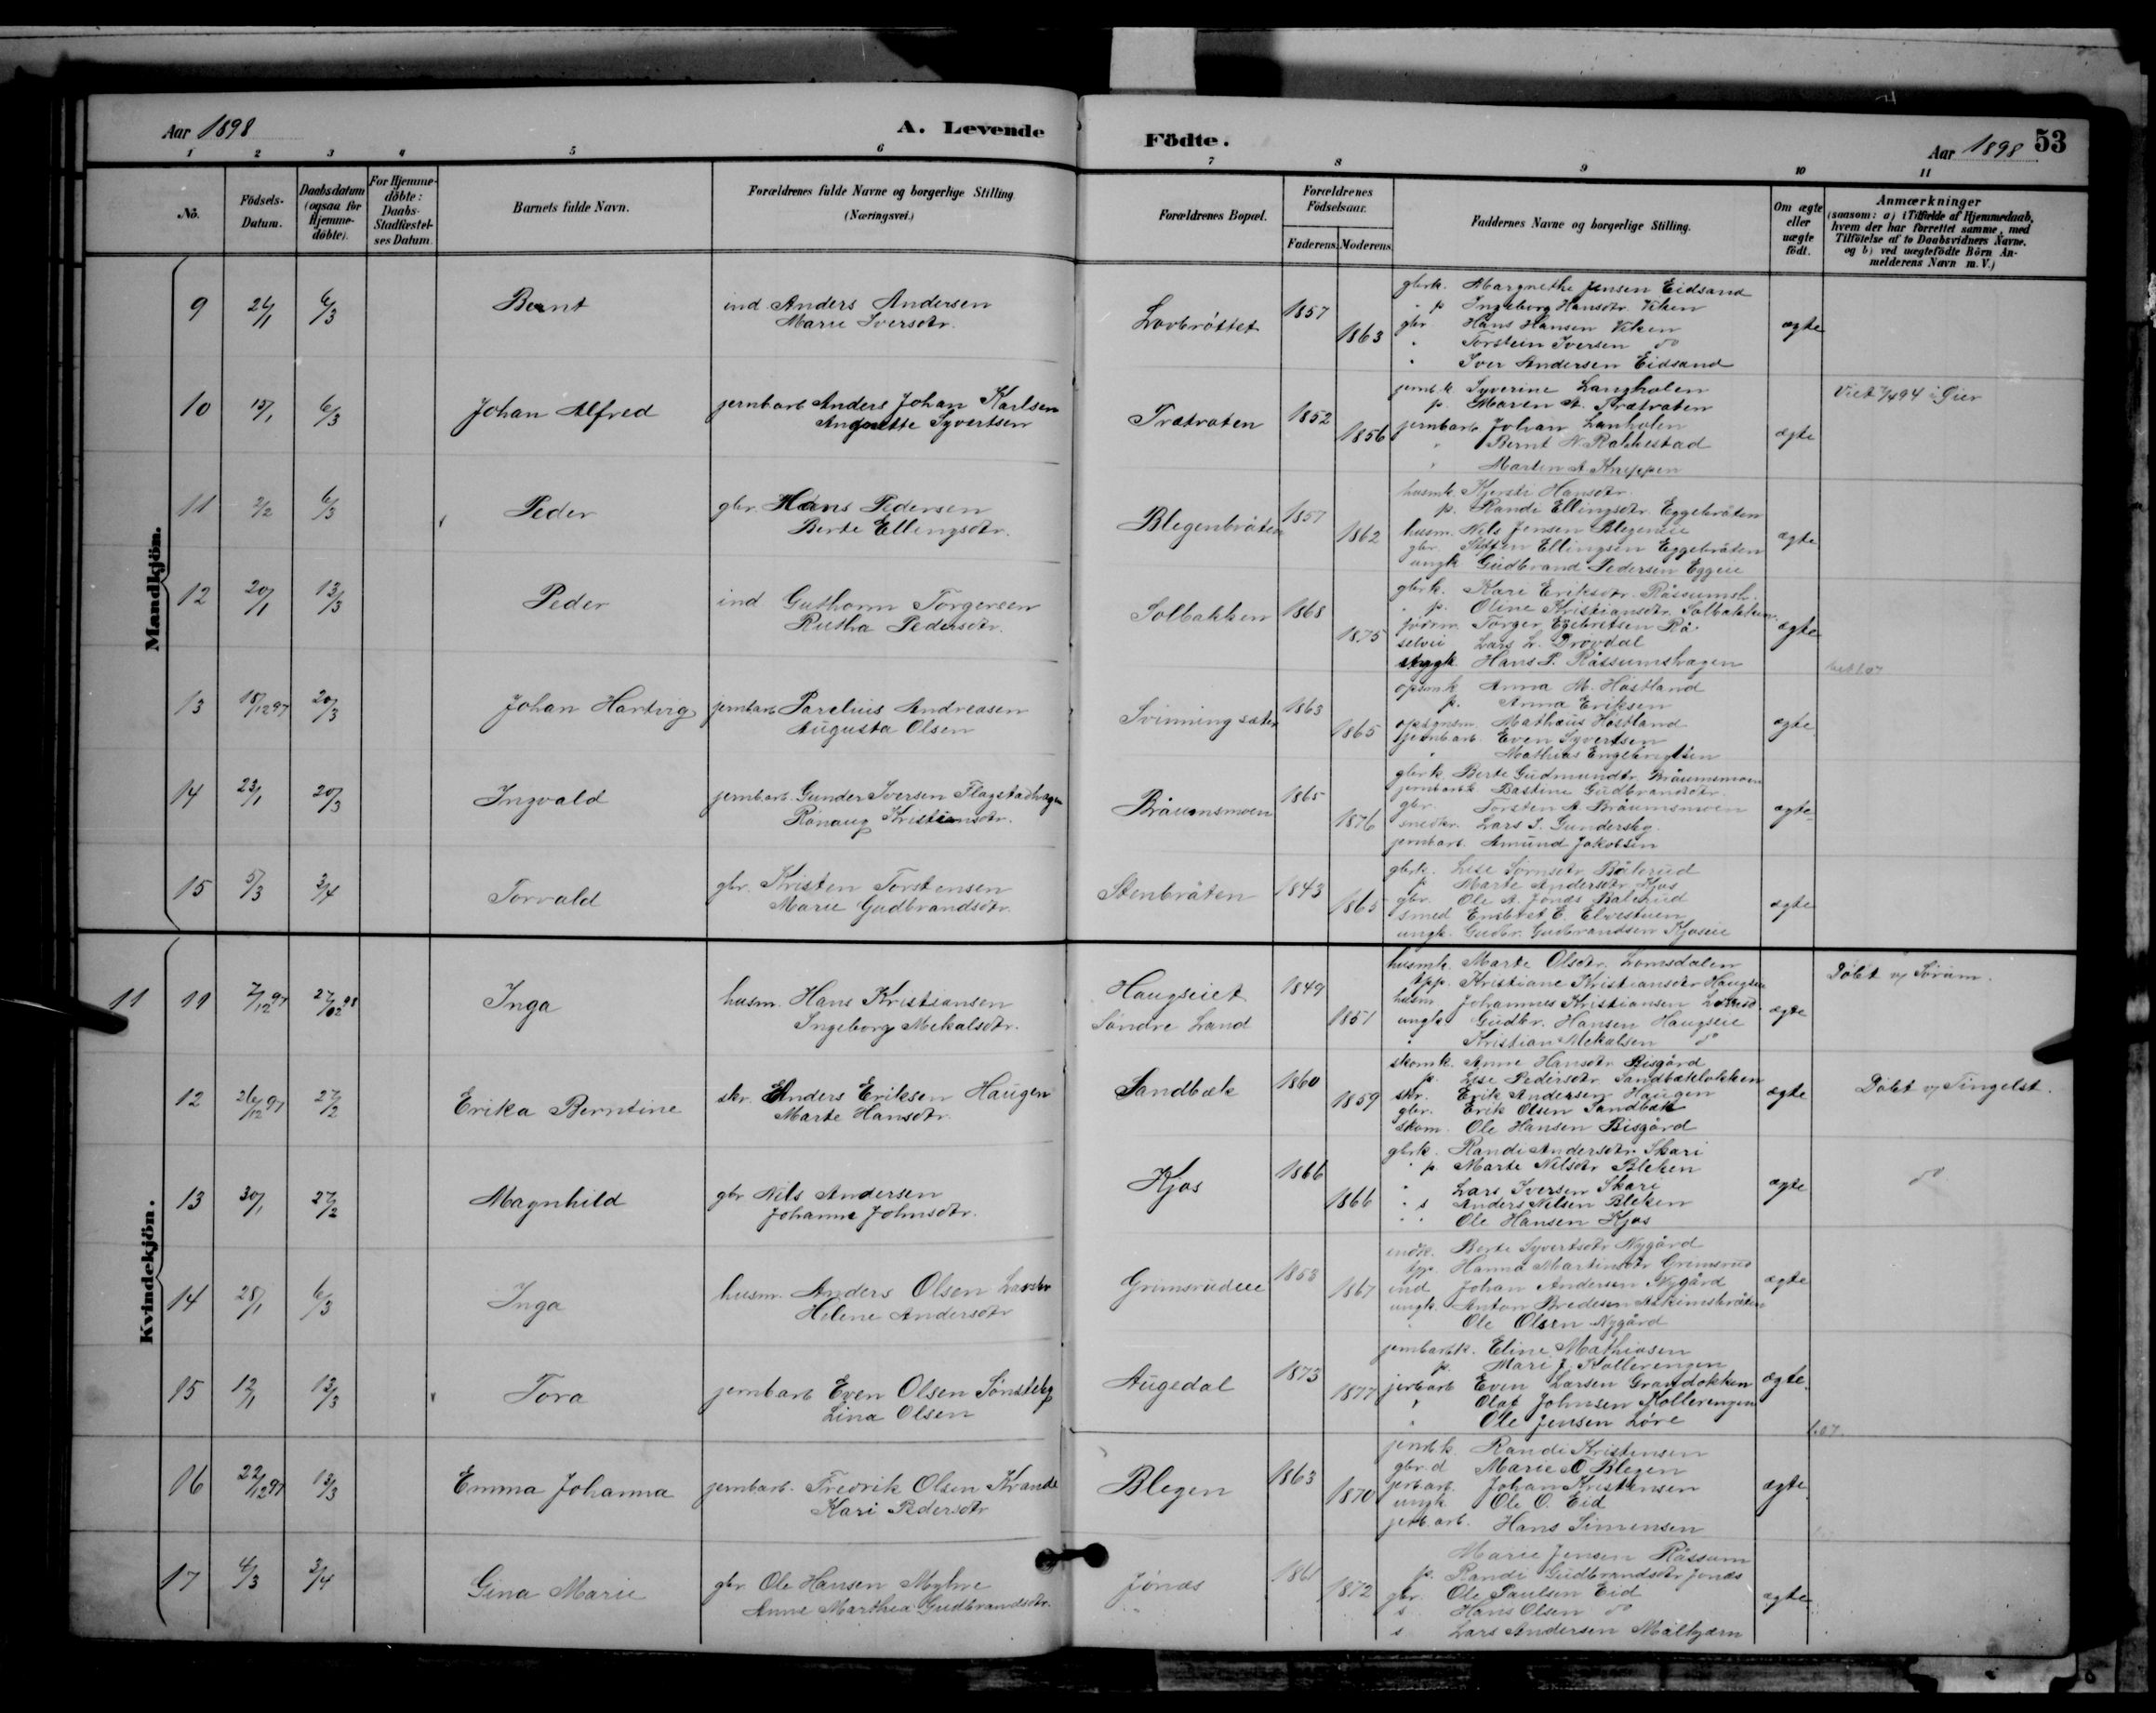 Aar 1898 A. Levende Födte. Aar 1898 53
1 2 3 4 5 6 7 8 9 10 11
Nô.
Födsels-Datum.
Daabsdatum (ogsaa for Hjemme-döbte).
For Hjemme-döbte: Daabs-Stadfæstel-ses Datum.
Barnets fulde Navn.
Forældrenes fulde Navne og borgerlige Stilling (Næringsvei.)
Forældrenes Bopæl.
Forældrenes Födselsaar.
Faderens. Moderens.
Faddernes Navne og borgerlige Stilling.
Om ægte eller uægte födt.
Anmærkninger
(saasom: a) i Tilfælde af Hjemmedaab,
hvem der har forrettet samme, med
Tilföielse af to Daabsvidners Navne,
og b) ved uægtefödte Börn An-
melderens Navn m. V.)
Mandkjön.
9 24/1 6/3 Bernt
ind. Anders Andersen
Marie Iversdtr.
Lovbråttet 1857 1863
gbrk. Margrethe Jensen Eidsand
" p Ingeborg Hansdtr. Viken
gbr Hans Hansen Viken
" Torstein Iversen do
" Iver Andersen Eidsand
ægte
10 15/1 6/3 Johan Alfred
jernbarb Anders Johan Karlsen
Angnette Syvertsen
Trætraten 1852 1856
jernb.k. Syverine Langholen
p. Maren A. Trætraten
jernbarb. Johan Lanholen
" Bernt N. Rakkestad
" Martin A. Kneppen
ægte
11 2/2 6/3 Peder
gbr. Hans Pedersen
Berte Ellingsdtr.
Blegenbråten 1857 1862
husmk. Kjersti Hansdtr.
p. Randi Ellingsdtr. Eggebråten
husm. Nils Jensen Blegeneie
gbr. Steffen Ellingsen Eggebråten
ungk Gudbrand Pedersen Eggeie
ægte
12 20/1 13/3 Peder
ind Guthorm Torgersen
Rutha Pedersdtr.
Solbakken 1868 1875
gbrk. Kari Eriksdtr. Råssumsh.
" p. Oline Kristiansdtr. Solbakken
Torger Egebretsen Rå
selvei Lars L. Drövdal
Hans P. Råssumshagen
ægte
13 18/12 97 20/3 Johan Hartvig
jernbarb Parelius Andreasen
Augusta Olsen
Svinning sæter 1863 1865
opsmk Anna M. Hastland
p. Anna Eriksen
opsynsm. Mathæus Hastland
jernbarb. Even Syvertsen
" Mathias Engebrigtsen
ægte
14 23/1 20/3 Ingvald
jernbarb. Gunder Iversen Flagstadhagen
Ranaug Kristiansdtr.
Bråumsmoen 1865 1876
gbrk. Berte Gudmundtr. Bråumsmoen
jernbarbk Bastine Gudbrandsdtr.
gbr. Torsten A. Bråumsmoen
snedkr. Lars I. Gundersby.
jernbarb. Amund Jakobsen
ægte
15 5/3 3/4 Torvald
gbr. Kristen Torstensen
Marie Gudbrandsdtr.
Stenbråten 1843 1865
gbrk. Lise Sørensdtr. Bålerud
p Marte Andersdtr. Kjos
gbr. Ole A. Jonds Balerud
smed Engbret E. Elvestuen
ungk. Gudbr. Gudbrandsen Kjoseie
ægte
Kvindekjön.
11 11 7/12 97 27/02 98 Inga
husm. Hans Kristiansen
Ingeborg Mikalsdtr.
Haugseiet
Söndre Land 1849 1851
husmk. Marte Olsdtr. Lomsdalen
tpp. Kristiane Kristiansdtr Haugseie
husm Johannes Kristiansen
ungk Gudbr. Hansen Haugseie
" Kristian Mikalsen do
ægte
Döbt v/ Sörum.
12 26/12 97 27/2 Erika Berntine
skr. Anders Eriksen Haugen
Marte Hansdtr.
Sandbæk 1860 1859
skomk. Anne Hansdtr. Bisgård
p. Lise Pedersdtr. Sandbæklokken
skr. Erik Andersen Haugen
gbr. Erik Olsen Sandbæk
skom. Ole Hansen Bisgård
ægte
Döbt v/ Tingelst.
13 30/1 27/2 Magnhild
gbr. Nils Andersen
Johanne Johnsdtr.
Kjos 1866 1866
gbrk. Randi Andersdtr. Skari
" p. Marte Nilsdtr Bleken
" Lars Iversen Skari
" s Anders Nilsen Bleken
" " Ole Hansen Kjos
ægte
do
14 28/1 6/3 Inga
husm. Anders Olsen
Helene Andersdtr
Grimsrudeie 1858 1867
indk. Berte Syvertsdtr Nygård
tpp. Hanna Martinsdtr Grimsrud
ind Johan Andersen Nygård
ungk. Anton Bredesen Askimsbråten
" Ole Olsen Nygård
ægte
15 12/1 13/3 Tora
jernbarb Even Olsen Sönsteby
Lina Olsen
Augedal 1873 1877
jernbarbk. Eline Mathiasen
p. Mari J. Kollerengen
jerbarb Even Larsen Grandokken
" Olaf Johnsen Kollerengen
" Ole Jensen Löre
ægte.
16 22/12 97 13/3 Emma Johanna
jernbarb. Fredrik Olsen Strande
Kari Pedersdtr
Blegen 1863 1870
jernb.k. Randi Kristensen
gbr.d Marie O Blegen
jerbarb. Johan Kristensen
ungk Ole O. Eid
jerb.arb. Hans Simensen
ægte
17 4/3 3/4 Gina Marie
gbr. Ole Hansen Myhre
Anne Marthea Gudbrandsdtr.
Jönds 1861 1872
Marie Jensen Råssum
p. Randi Gudbrandsdtr Jonds
gbr. Ole Paulsen Eid
s Hans Olsen do
s Lars Andersen Mælbjærn
ægte